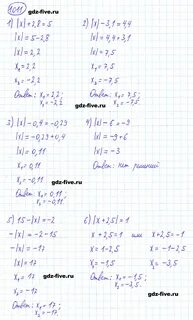 1011
1) |x|+2,8=5
|x|=5-2,8
|x|=2,2
x₁=2,2
x₂=-2,2
Ответ: x₁=2,2;
x₂=-2,2.
2) |x|-3,1=4,4
|x|=4,4+3,1
|x|=7,5
x₁=7,5
x₂=-7,5
Ответ: x₁=7,5;
x₂=-7,5.
gdz-five.ru
gdz-five.ru
3) |x|-0,4=-0,29
|x|=-0,29+0,4
|x|=0,11
x₁=0,11
x₂=-0,11
Ответ: x₁=0,11;
x₂=-0,11.
4) |x|-6=-9
|x|=-9+6
|x|=-3
Ответ: нет решений
gdz-five.ru
gdz-five.ru
5) 15-|x|=-2
-|x|=-2-15
-|x|=-17
|x|=17
x₁=17
x₂=-17
Ответ: x₁=17;
x₂=-17.
6) |x+2,5|=1
x+2,5=1 или x+2,5=-1
x=1-2,5 x=-1-2,5
x=-1,5 x=-3,5
Ответ: x₁=-1,5;
x₂=-3,5.
gdz-five.ru
gdz-five.ru